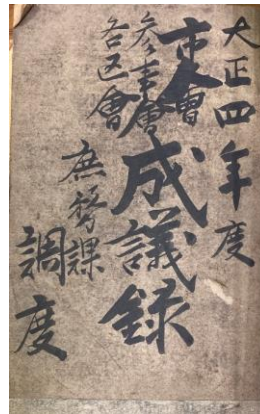 大正四年度
市會
参事會
各区會
成議録
庶務課
調度